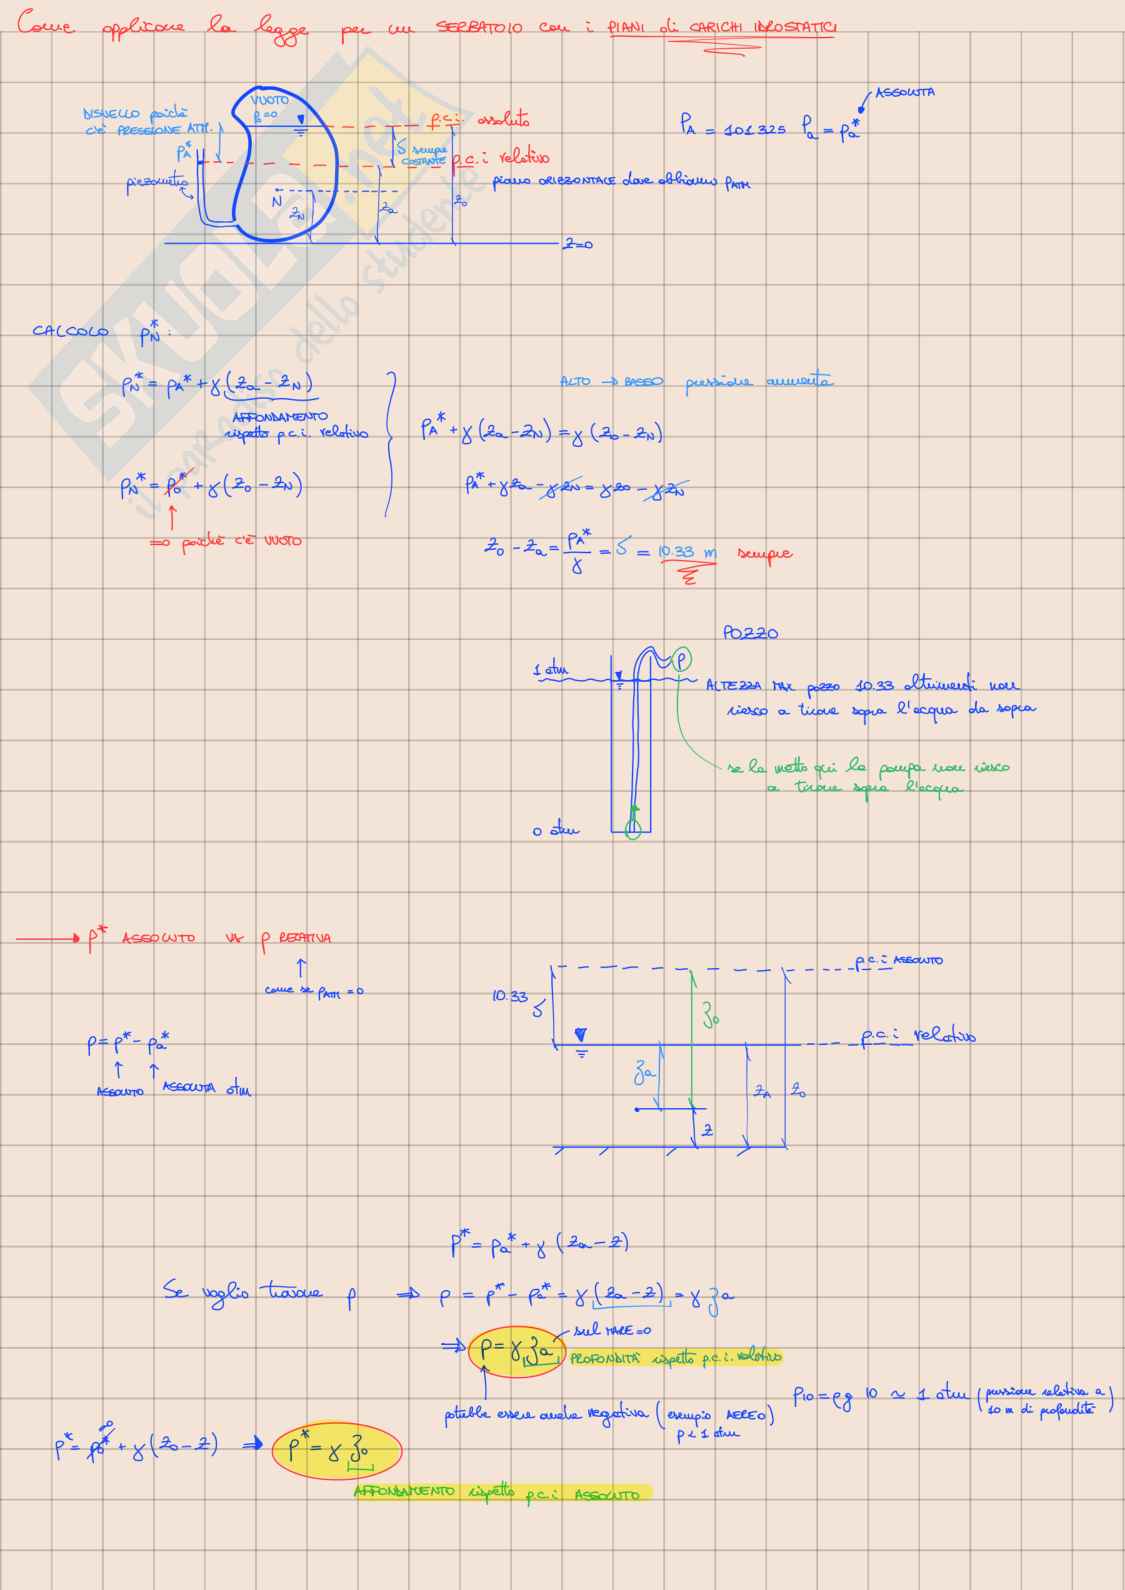 Come applicare la legge per un SERBATOIO con i PIANI di CARICHI IDROSTATICI
DISLIVELLO poichè
c'è PRESSIONE ATM.
VUOTO
p=0
p.c.i. assoluto
δ sempre
COSTANTE
p.c.i relativo
piano ORIZZONTALE dove abbiamo pATM
pA*
piezometro
N
zN
za
zo
z=0
ASSOLUTA
PA = 101325 Pa = pa*
CALCOLO pN* :
pN* = pA* + γ (za - zN)
AFFONDAMENTO
rispetto p.c.i. relativo
pN* = po* + γ (zo - zN)
=0 poichè c'è VUOTO
ALTO → BASSO pressione aumenta
PA* + γ (za - zN) = γ (zo - zN)
pA* + γza - γzN = γzo - γzN
zo - za = pA*/γ = δ = 10.33 m sempre
POZZO
1 atm
P
ALTEZZA MAX pozzo 10.33 altrimenti non
riesco a tirare sopra l'acqua da sopra
se la metto qui la pompa non riesco
a tirare sopra l'acqua
0 atm
→ p* ASSOLUTO vs p RELATIVA
↑
come se pATM = 0
p = p* - pa*
↑ ↑
ASSOLUTO ASSOLUTA atm
p.c.i ASSOLUTO
10.33
δ
ζo
p.c.i relativo
ζa
zA
zo
z
p* = pa* + γ (za - z)
Se voglio trovare p ⇒ p = p* - pa* = γ (za - z) = γ ζa
⇒ p = γ ζa
sul MARE = 0
PROFONDITÀ rispetto p.c.i. relativo
potrebbe essere anche negativa (esempio AEREO)
p < 1 atm
p10 = ρg 10 ≃ 1 atm (pressione relativa a
10 m di profondità)
p* = po* + γ (zo - z) ⇒ p* = γ ζo
AFFONDAMENTO rispetto p.c.i ASSOLUTO
SKUOLA.net
il paradiso dello studente